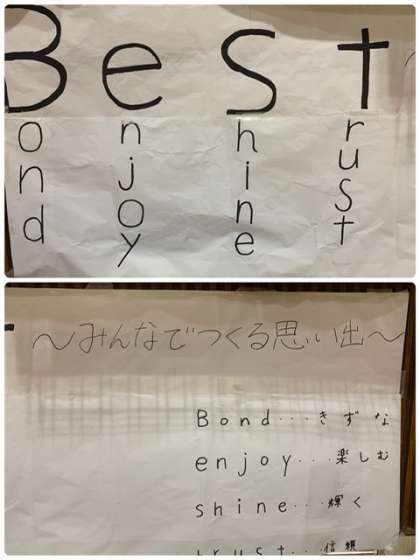 Best
ond
njoy
hine
rust
～みんなでつくる思い出～
Bond・・・きずな
enjoy・・・楽しむ
shine・・・輝く
trust・・・信頼